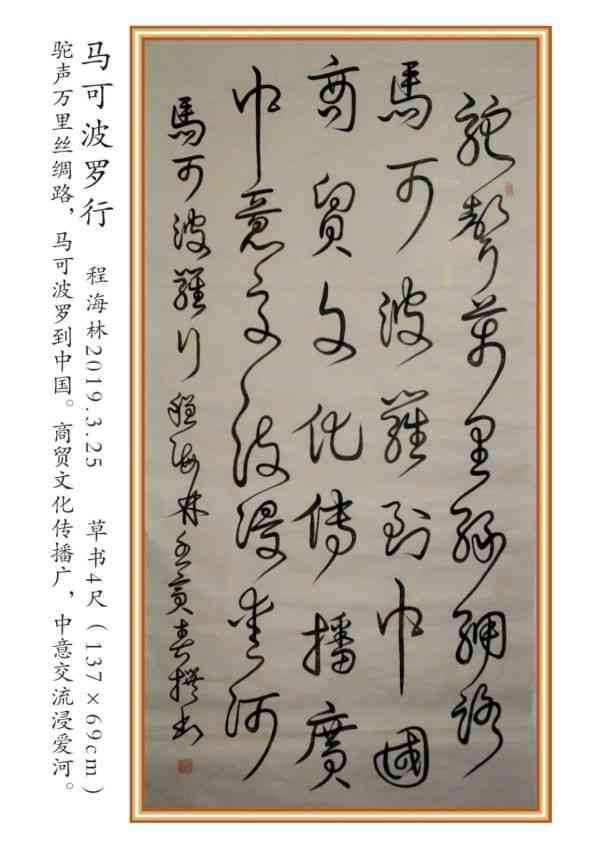 马可波罗行 程海林2019.3.25 草书4尺（137×69cm）
驼声万里丝绸路，马可波罗到中国。商贸文化传播广，中意交流浸爱河。
駝聲萬里絲綢路
馬可波羅到中國
商貿文化傳播廣
中意交流浸愛河
馬可波羅行 程海林 春撰书